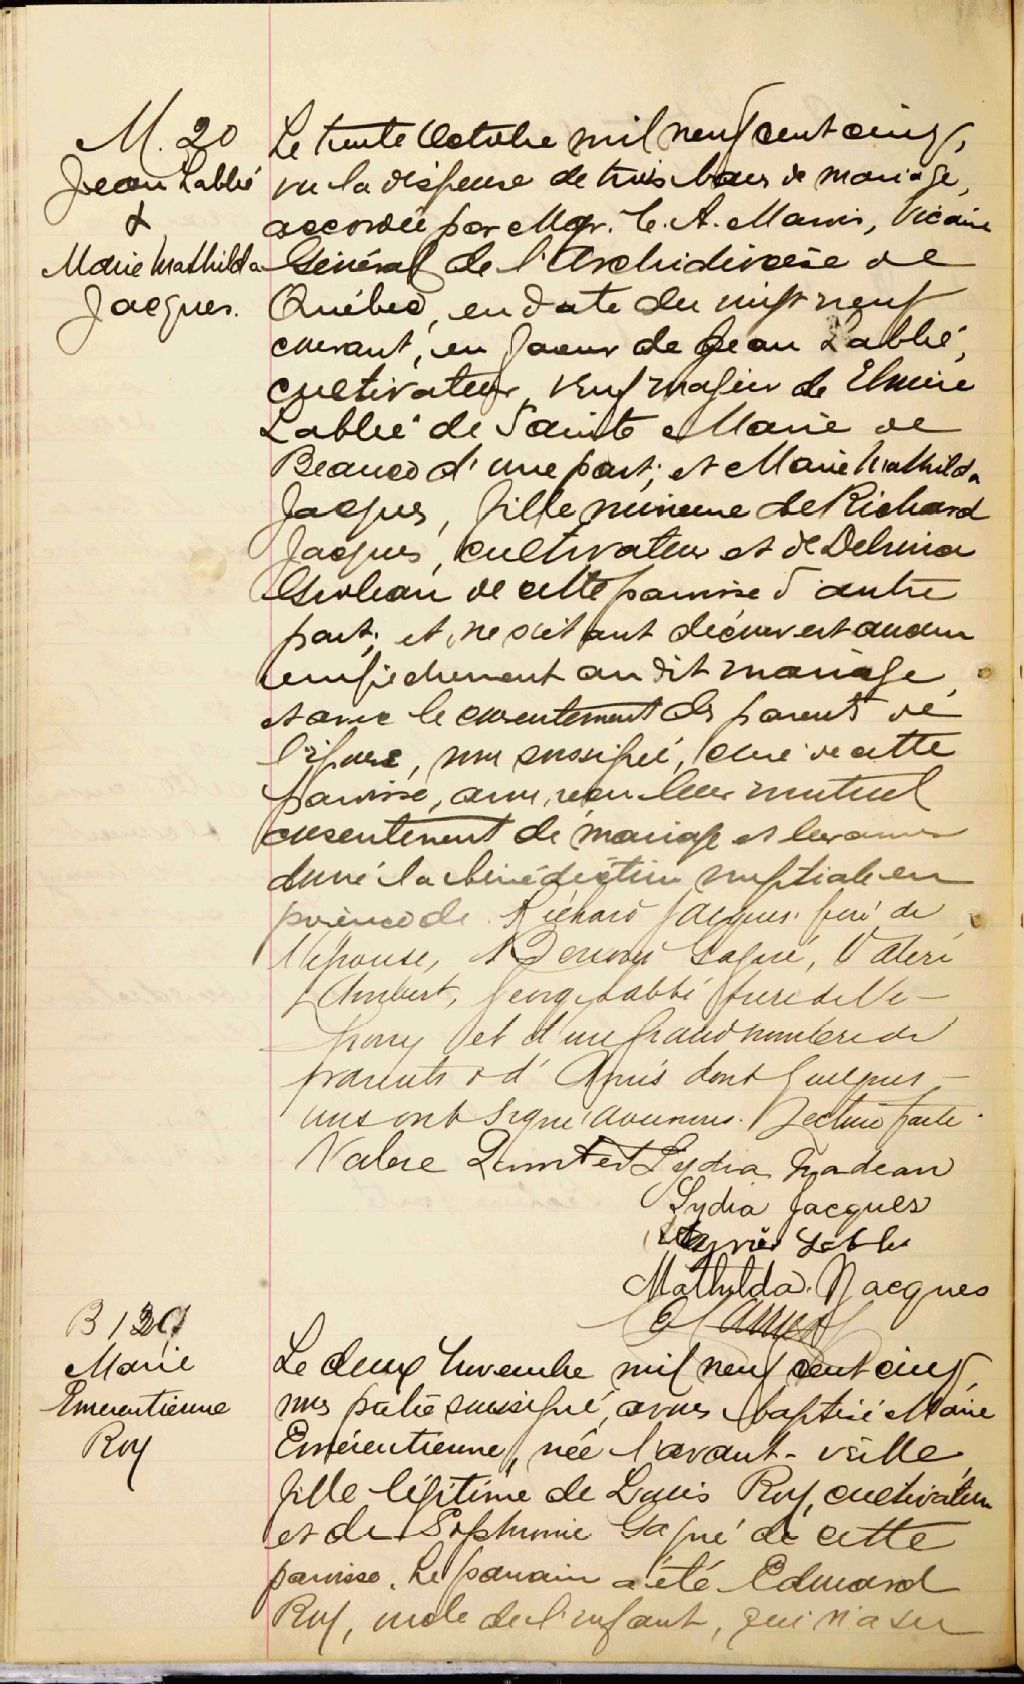 M. 20
Jean Labbé
&
Marie Mathilda
Jacques.
Le trente Octobre mil neuf cent cinq,
vu la dispense de trois bans de mariage,
accordée par Mgr. C. A. Marois, Vicaire
Général de l'Archidiocèse de
Québec, en date du vingt neuf
courant, en faveur de Jean Labbé,
cultivateur, veuf majeur de Elmire
Labbé de Sainte Marie de
Beauce d'une part; et Marie Mathilda
Jacques, fille mineure de Richard
Jacques, cultivateur et de Delvina
Groleau de cette paroisse d'autre
part; et ne s'étant découvert aucun
empêchement au dit mariage,
et avec le consentement des parents de
l'épouse, nous soussigné, curé de cette
paroisse, avons reçu leur mutuel
consentement de mariage et leur avons
donné la bénédiction nuptiale en
présence de Richard Jacques père de
l'épouse, Gagné, Valère
Lambert, George Labbé frère de l'é-
poux et d'un grand nombre de
parents & d'Amis dont quelques-
uns ont signé avec nous. Lecture faite.
Valere Lambert Lydia Nadeau
Lydia Jacques
Labbé
Mathilda Jacques
B 129
Marie
Emerentienne
Roy
Le deux Novembre mil neuf cent cinq,
nous prêtre soussigné, avons baptisé Marie
Emérentienne, née l'avant-veille,
fille légitime de Louis Roy, cultivateur
et de Sophronie Gagné de cette
paroisse. Le parrain a été Edouard
Roy, oncle de l'enfant, qui n'a su